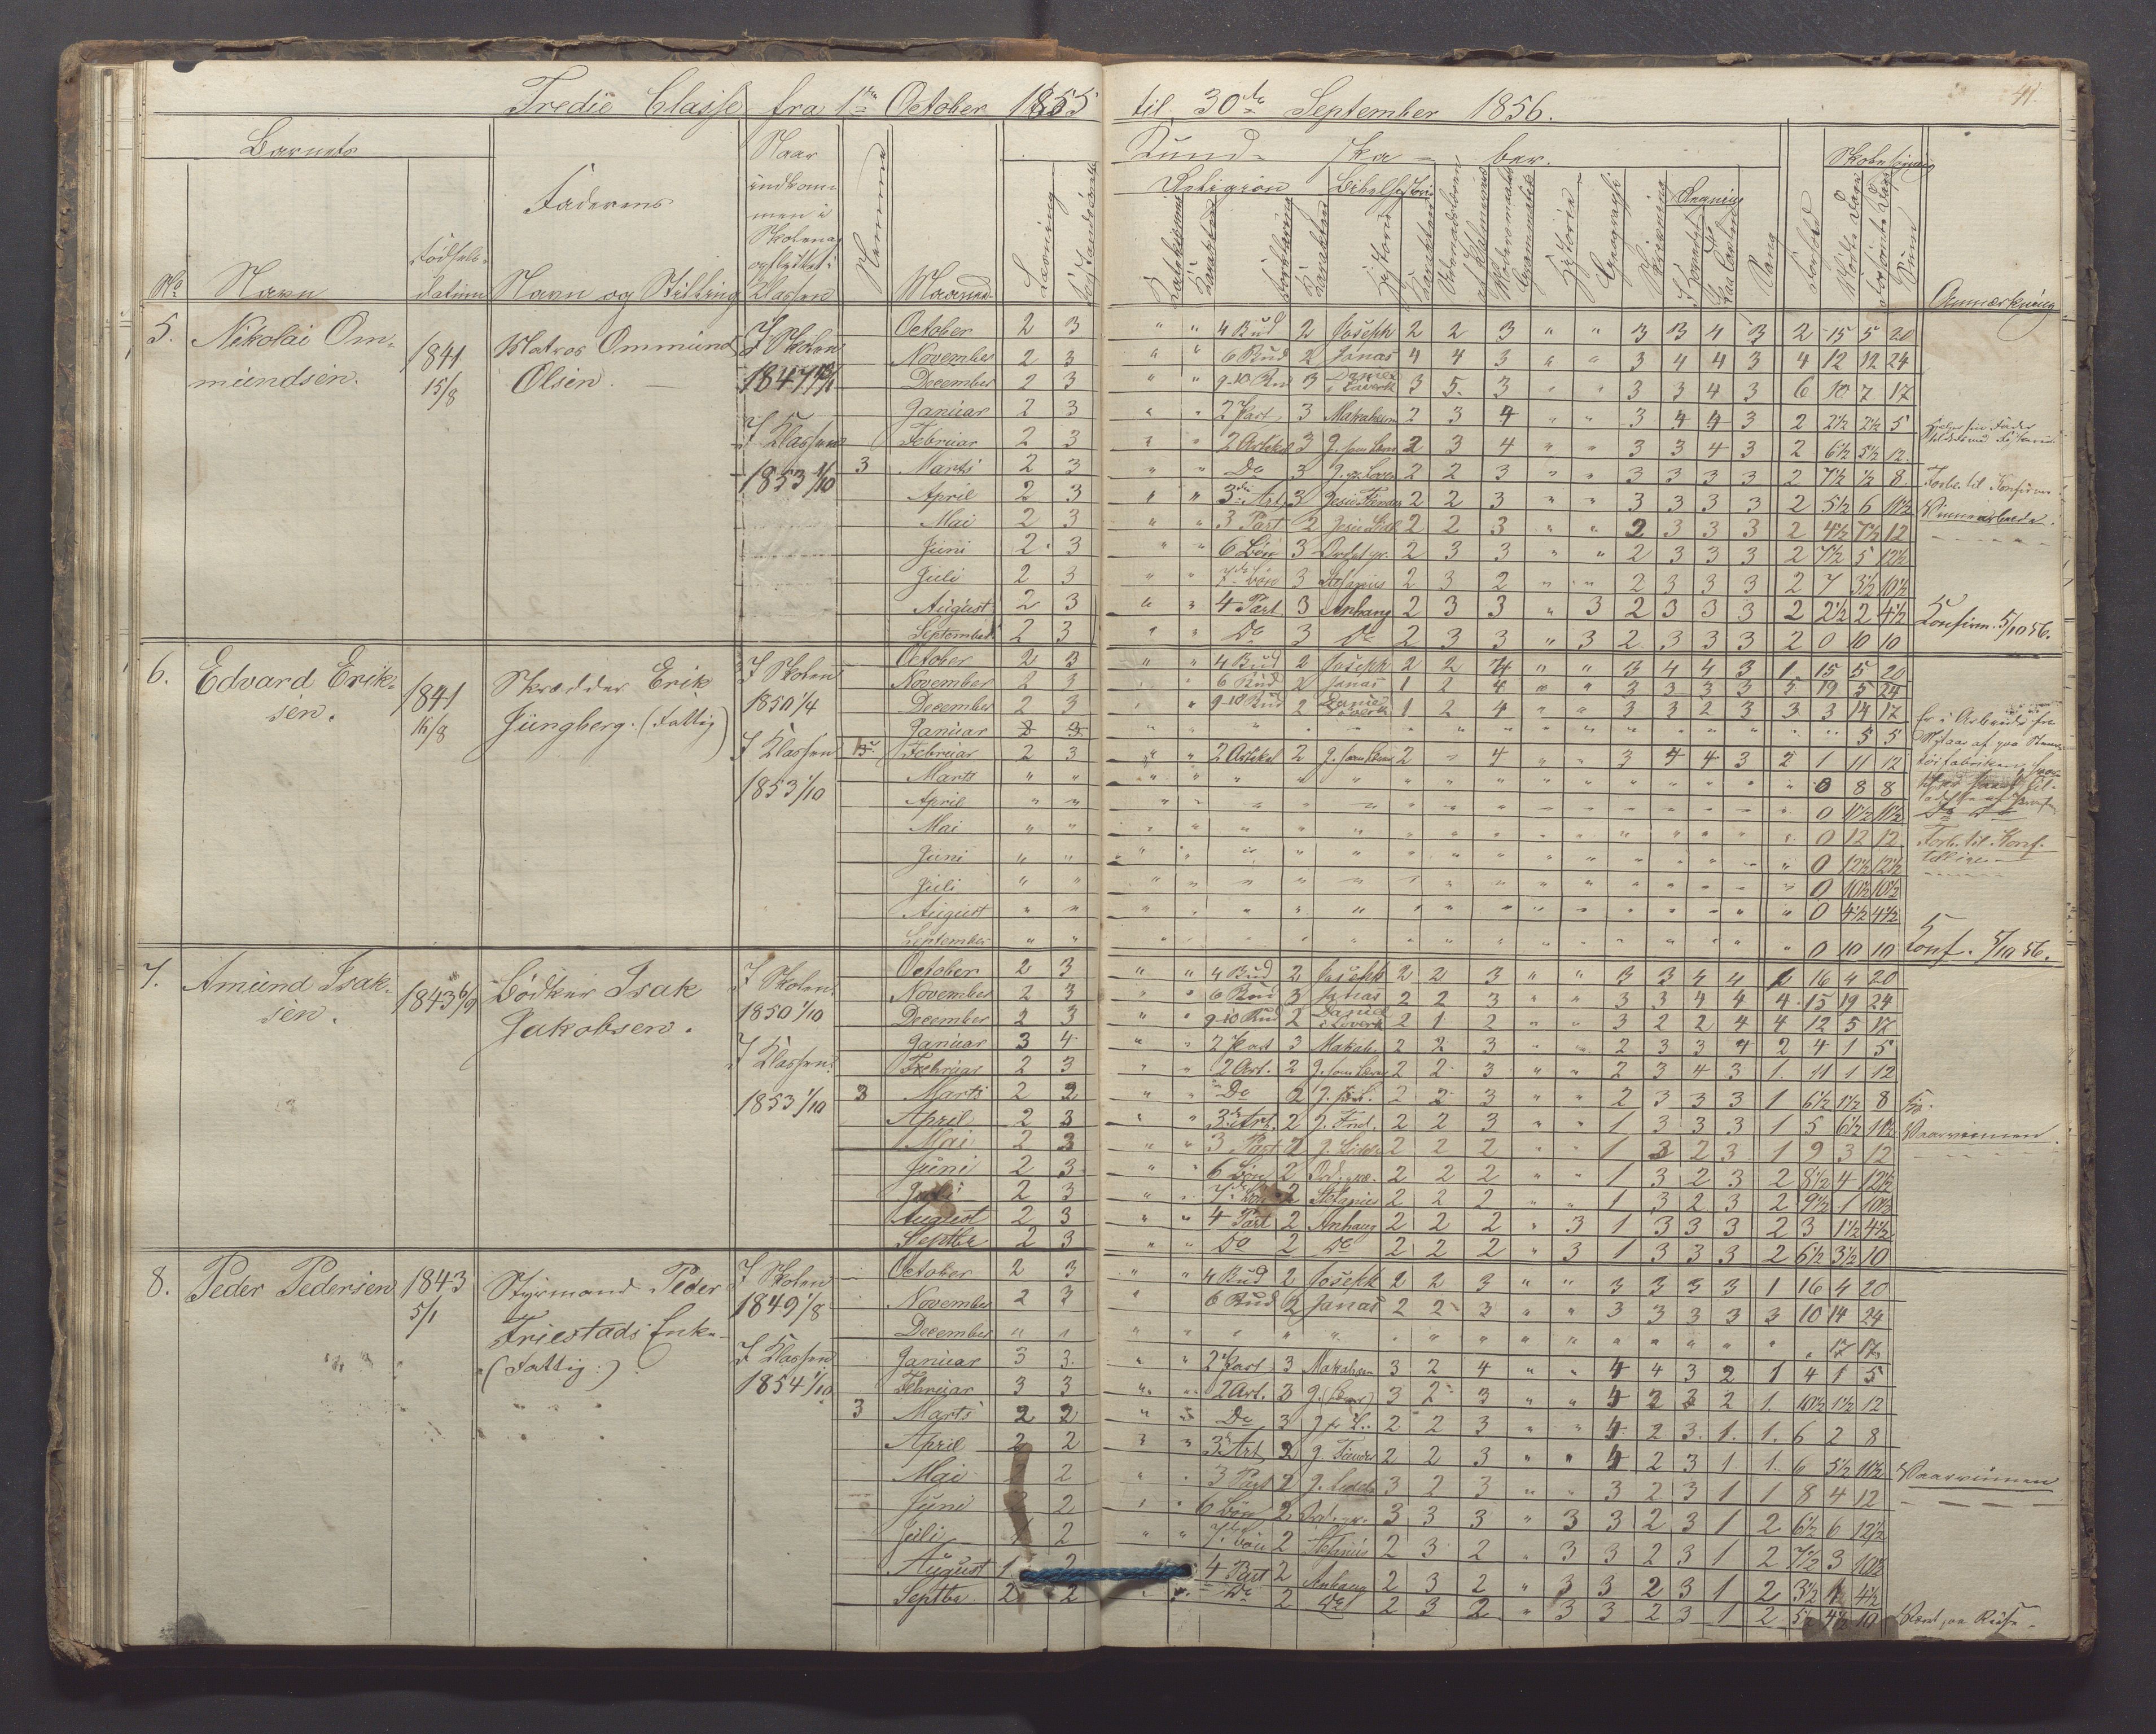 Tredie Classe fra 1ste October 1855 til 30te September 1856.
41.
Barnets
No Navn Fødsels-datum
Faderens Navn og Stilling
Naar indkommen i Skolen og opflyttet i Klassen
Nemme
Maaned
Læsning
Kund-ska-ber.
Religion Bibelhistorie
Historie Geografi Skrivning Regning Sang
Forhold
Skolesøgning
Søgte Dage Forsømte Dage Summ
Anmærkning
5. Nikolai Ommundsen. 1841 15/8 Matros Ommund Olsen. I Skolen 1847 I Klassen 1853 1/10
October 2 3 " " 4 Bud 2 Joseph 2 2 3 " " 3 3 4 3 2 15 5 20
November 2 3 " " 6 Bud 2 Jonas 4 4 3 " " 3 4 4 3 4 12 12 24
December 2 3 " " 9-10 Bud 3 Daniel i Løverk 3 5 3 " " 3 3 4 3 6 10 7 17
Januar 2 3 " " 2 Part 3 Makabæern 2 3 4 " " 3 4 4 3 2 2½ 2½ 5
Februar 2 3 " " 2 Artikel 3 J. som Lærer 2 3 4 " " 3 3 4 3 2 6½ 5½ 12
3 Marts 2 3 " " Do 3 2 2 3 " " 3 3 3 3 2 7½ ½ 8 Forb. til Konfirm.
April 2 3 " " 3die Art. 3 Jesu Fiender 2 2 3 " " 3 3 3 3 2 5½ 6 11½ Vinnearbeide.
Mai 2 3 " " 3 Part 2 Jesu Lidel 2 2 3 " " 2 3 3 3 2 4½ 7½ 12
Juni 2 3 " " 6 Bøn 3 2 3 3 " " 2 3 3 3 2 7½ 5 12½
Juli 2 3 " " 7de Bøn 3 Stefanus 2 3 2 " " 2 3 3 3 2 7 3½ 10½
August 2 3 " " 4 Part 3 Anhang 2 3 3 " 3 2 3 3 3 2 2½ 2 4½
September 2 3 " " Do 3 Do 2 3 3 " 3 2 3 3 3 2 0 10 10 Konfirm. 5/10 56.
6. Edvard Eriksen. 1841 16/8 Skrædder Erik Jüngberg. (Fattig) I Skolen 1850 1/4 I Klassen 1853 1/10
October 2 3 " " 4 Bud 2 Joseph 2 2 4 " " 3 4 4 3 1 15 5 20
November 2 3 " " 6 Bud 2 Jonas 1 2 4 " " 3 3 3 3 5 19 5 24
December 2 3 " " 9-10 Bud 2 Daniel i Løverk 1 2 4 " " 3 3 2 3 3 3 14 17
Januar 2 3 " " " " " " " " " " " " " " " " 5 5
Februar 2 3 " " 2 Artikel 2 J. som Lærer 2 " 4 " " 3 4 4 3 2 1 11 12
Marts " " " " " " " " " " " " " " " " 0 8 8
April " " " " " " " " " " " " " " " " 0 11½ 11½
Mai " " " " " " " " " " " " " " " " 0 12 12 Forb. til Konf.
Juni " " " " " " " " " " " " " " " " 0 12½ 12½
Juli " " " " " " " " " " " " " " " " 0 10½ 10½
August " " " " " " " " " " " " " " " " 0 4½ 4½
September " " " " " " " " " " " " " " " " 0 10 10 Konf. 5/10 56.
7. Amund Isaksen. 1843 6/9 Bødker Isak Jakobsen. I Skolen 1850 1/10 I Klassen 1853 1/10
October 2 3 " " 4 Bud 2 Joseph 2 2 3 " " 3 3 4 4 6 16 4 20
November 2 3 " " 6 Bud 3 Jonas 2 2 3 " " 3 3 4 4 4 15 19 24
December 2 3 " " 9-10 Bud 2 Daniel i Løverk 2 1 2 " " 3 2 2 4 4 12 5 17
Januar 3 4 " " 2 Part 3 Makab. 2 2 3 " " 2 3 3 4 2 4 1 5
Februar 2 3 " " 2 Art. 2 J. som Lærer 2 2 3 " " 2 3 4 3 1 11 1 12
3 Marts 2 2 " " Do 2 2 2 3 " " 2 3 3 3 1 6½ 1½ 8
April 2 3 " " 3die Art. 2 J. Fnd. 2 2 3 " " 1 3 3 3 1 5 6½ 11½ Vaarvinnen.
Mai 2 3 " " 3 Part 2 J. Lidelse 2 2 2 " " 1 3 2 3 1 9 3 12
Juni 2 3 " " 6 Bøn 2 2 2 2 " " 1 3 2 3 2 8½ 4 12½
Juli 2 3 " " 7de Bøn 2 Stefanus 2 2 2 " " 1 3 2 3 2 9½ 1 10½
August 2 3 " " 4 Part 2 Anhang 2 2 2 " 3 1 3 3 3 2 3 1½ 4½
Septbr 2 3 " " Do 2 Do 2 2 2 " 3 1 3 3 3 2 6½ 3½ 10
8. Peder Pedersen 1843 5/1 Styrmand Peder Friestads Enke. (Fattig:) I Skolen 1849 1/8 I Klassen 1854 1/10
October 2 3 " " 4 Bud 2 Joseph 2 2 3 " " 3 3 3 3 1 16 4 20
November 2 3 " 6 Bud 2 Jonas 2 2 3 " " 3 3 3 3 3 10 14 24
December " " " " " " " " " " " " " " " " " 17 17
Januar 3 3 " " 2 Part 3 Makabæern 3 2 4 " " 4 4 3 2 1 4 1 5
Februar 3 3 " " 2 Art. 3 J. (Lærer) 3 2 3 " " 4 3 3 2 1 10½ 1½ 12
3 Marts 2 2 " " Do 3 2 2 3 " " 4 2 3 1 1 6 2 8
April 2 2 " " 3die Art. 2 J. Fiender 2 2 3 " " 4 2 3 1 1 6 5½ 11½
Mai 2 " " 3 Part 2 J. Lidelse 3 2 3 " " 3 2 3 1 1 8 4 12 Vaarvinnen
Juni 2 " " 6 Bøn 2 3 3 3 " 3 3 2 3 1 2 6½ 6 12½
Juli 2 " " 7de Bøn 2 Stefanus 2 3 2 " 3 3 2 3 1 2 7½ 3 10½
August 1 2 4 Part 2 Anhang 2 3 2 " 3 3 2 3 1 2 3½ 1 4½
Septbr 2 2 " " Do 2 Do 2 3 2 " 3 3 2 3 1 2 5½ 4½ 10